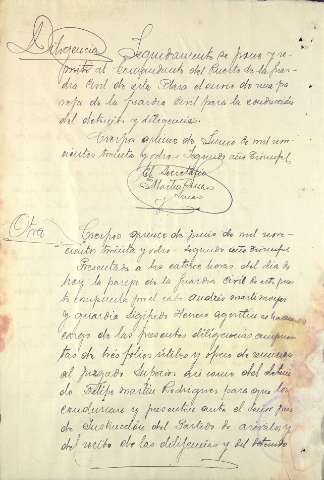 Diligencia Seguidamente se pone y re-
mite al Comandante del Puesto de la Guar-
dia Civil de esta Plaza el envio de una pa
reja de la guardia Civil para la conducion
del detenido y diligencias.
Crespos quince de Junio de mil no-
vecientos treinta y ocho Segundo año Triunfal
El Secretario
Otra Crespos quince de junio de mil nove
cientos treinta y ocho Segundo año triunfal
Presentada a las catorce horas del dia de
hoy la pareja de la Guardia Civil de este pues
to compuesta por el cabo Andrés
y guardia Sigifido Herrero se hacen
cargo de las presentes diligencias compues-
tas de tres folios utiles y oficio de remision
al Juzgado Superior asi como del deteni
do Felipe Martin Rodriguez para que los
conduzcan y presenten ante el Señor Juez
de Instrucción del Partido de Arévalo y
del recibo de las diligencias y del detenido